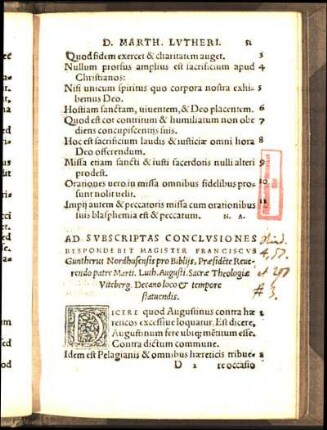 D. MARTH. LVTHERI. 51
Quod fidem exercet & charitatem auget. 3
Nullum prorsus amplius est sacrificium apud 4
Christianos:
Nisi unicum spiritus quo corpora nostra exhi- 5
bemus Deo.
Hostiam sanctam, uiuentem, & Deo placentem. 6
Quod est cor contritum & humiliatum non obe 7
diens concupiscentijs suis.
Hoc est sacrificium laudis & iusticiæ omni hora 8
Deo offerendum.
Missa etiam sancti & iusti sacerdotis nulli alteri 9
prodest.
Orationes uero in missa omnibus fidelibus pro- 10
sunt nolit uelit.
Impij autem & peccatoris missa cum orationibus 11
suis blasphemia est & peccatum. N. A.
AD SVBSCRIPTAS CONCLVSIONES
RESPONDEBIT MAGISTER FRANCISCVS
Guntherus Nordhusensis pro Biblijs, Præsidēte Reue-
rendo patre Marti. Luth. Augusti. Sacræ Theologiæ
Viteberg. Decano loco & tempore
statuendis.
DICERE quod Augustinus contra hæ 1
reticos excessiue loquatur. Est dicere,
Augustinum fere ubiq; mentitum esse.
Contra dictum commune.
Idem est Pelagianis & omnibus hæreticis tribue- 2
D 2 re occasio